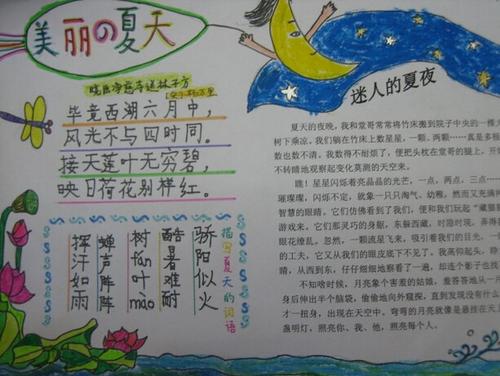 美丽の夏天
晓出净慈寺送林子方
毕竟西湖六月中，
风光不与四时同。
接天莲叶无穷碧，
映日荷花别样红。
描写夏天的词语
骄阳似火
酷暑难耐
树fán叶mào
蝉声阵阵
挥汗如雨
迷人的夏夜
夏天的夜晚，我和堂哥常常将竹床搬到院子中央的一棵大
树下乘凉，我们躺在竹床上数星星，一颗，两颗……真是多极
数也数不清。我数得不耐烦了，便把头枕在堂哥的腿上，开始
不转睛地观察起变化莫测的天空来。
瞧！星星闪烁着亮晶晶的光芒，一点，两点，三点……
璀璨璨，闪烁不定，就象一只只淘气、幼稚，然而又充满
智慧的眼睛。它们仿佛看到了我们，便和我们玩起“藏猫
游戏来。它们那灵巧的身躯，东躲西藏，时隐时现，弄得
眼花缭乱。忽然，一颗流星飞来，吸引着我们的目光，一
的工夫，它又从我们的眼皮底下不见了。我高仰起头，睁
睛，从西到东，仔仔细细地察看了一遍，却连个影子也找
不知啥时候，月亮象个害羞的姑娘，羞答答地从一片
身后伸出半个脑袋，偷偷地向外窥探，直到发现没有什么
才一扭身，出现在天空中。弯弯的月亮就像是悬挂在天上
盏明灯，照亮你、我、他，照亮每个人。